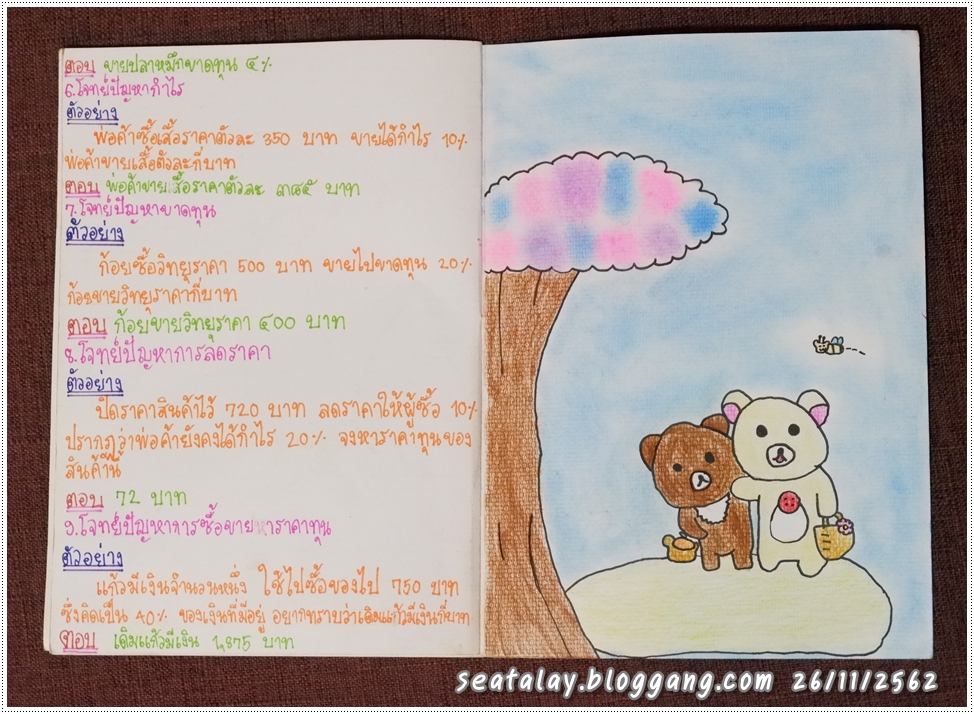 ตอบ ขายปลาหมึกขาดทุน ๔%
6.โจทย์ปัญหากำไร
ตัวอย่าง
พ่อค้าซื้อเสื้อราคาตัวละ 350 บาท ขายได้กำไร 10%
พ่อค้าขายเสื้อตัวละกี่บาท
ตอบ พ่อค้าขายเสื้อราคาตัวละ ๓๘๕ บาท
7.โจทย์ปัญหาขาดทุน
ตัวอย่าง
ก้อยซื้อวิทยุราคา 500 บาท ขายไปขาดทุน 20%
ก้อยขายวิทยุราคากี่บาท
ตอบ ก้อยขายวิทยุราคา ๔๐๐ บาท
8.โจทย์ปัญหาการลดราคา
ตัวอย่าง
ปิดราคาสินค้าไว้ 720 บาท ลดราคาให้ผู้ซื้อ 10%
ปรากฏว่าพ่อค้ายังคงได้กำไร 20% จงหาราคาทุนของ
สินค้านี้
ตอบ 72 บาท
9.โจทย์ปัญหาการซื้อขายหาราคาทุน
ตัวอย่าง
แก้วมีเงินจำนวนหนึ่ง ใช้ไปซื้อของไป 750 บาท
ซึ่งคิดเป็น 40% ของเงินที่มีอยู่ อยากทราบว่าเดิมแก้วมีเงินกี่บาท
ตอบ เดิมแก้วมีเงิน 1,875 บาท
seatalay.bloggang.com 26/11/2562